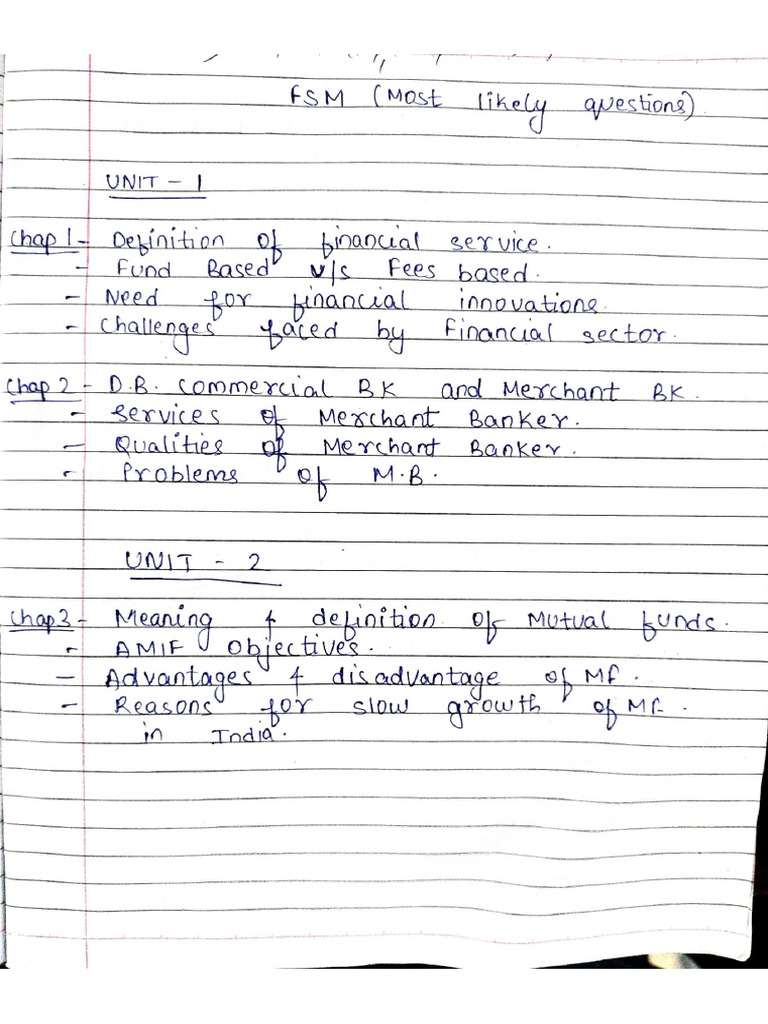 FSM (Most likely questions)
UNIT - 1
Chap 1 - Definition of financial service.
- Fund Based v/s Fees based.
- Need for financial innovations.
- Challenges faced by Financial sector.
Chap 2 - D.B. Commercial BK and Merchant BK.
- Services of Merchant Banker.
- Qualities of Merchant Banker.
- Problems of M.B.
UNIT - 2
Chap 3 - Meaning & definition of Mutual funds.
- AMIF Objectives.
- Advantages & disadvantage of MF.
- Reasons for slow growth of MF.
in India.